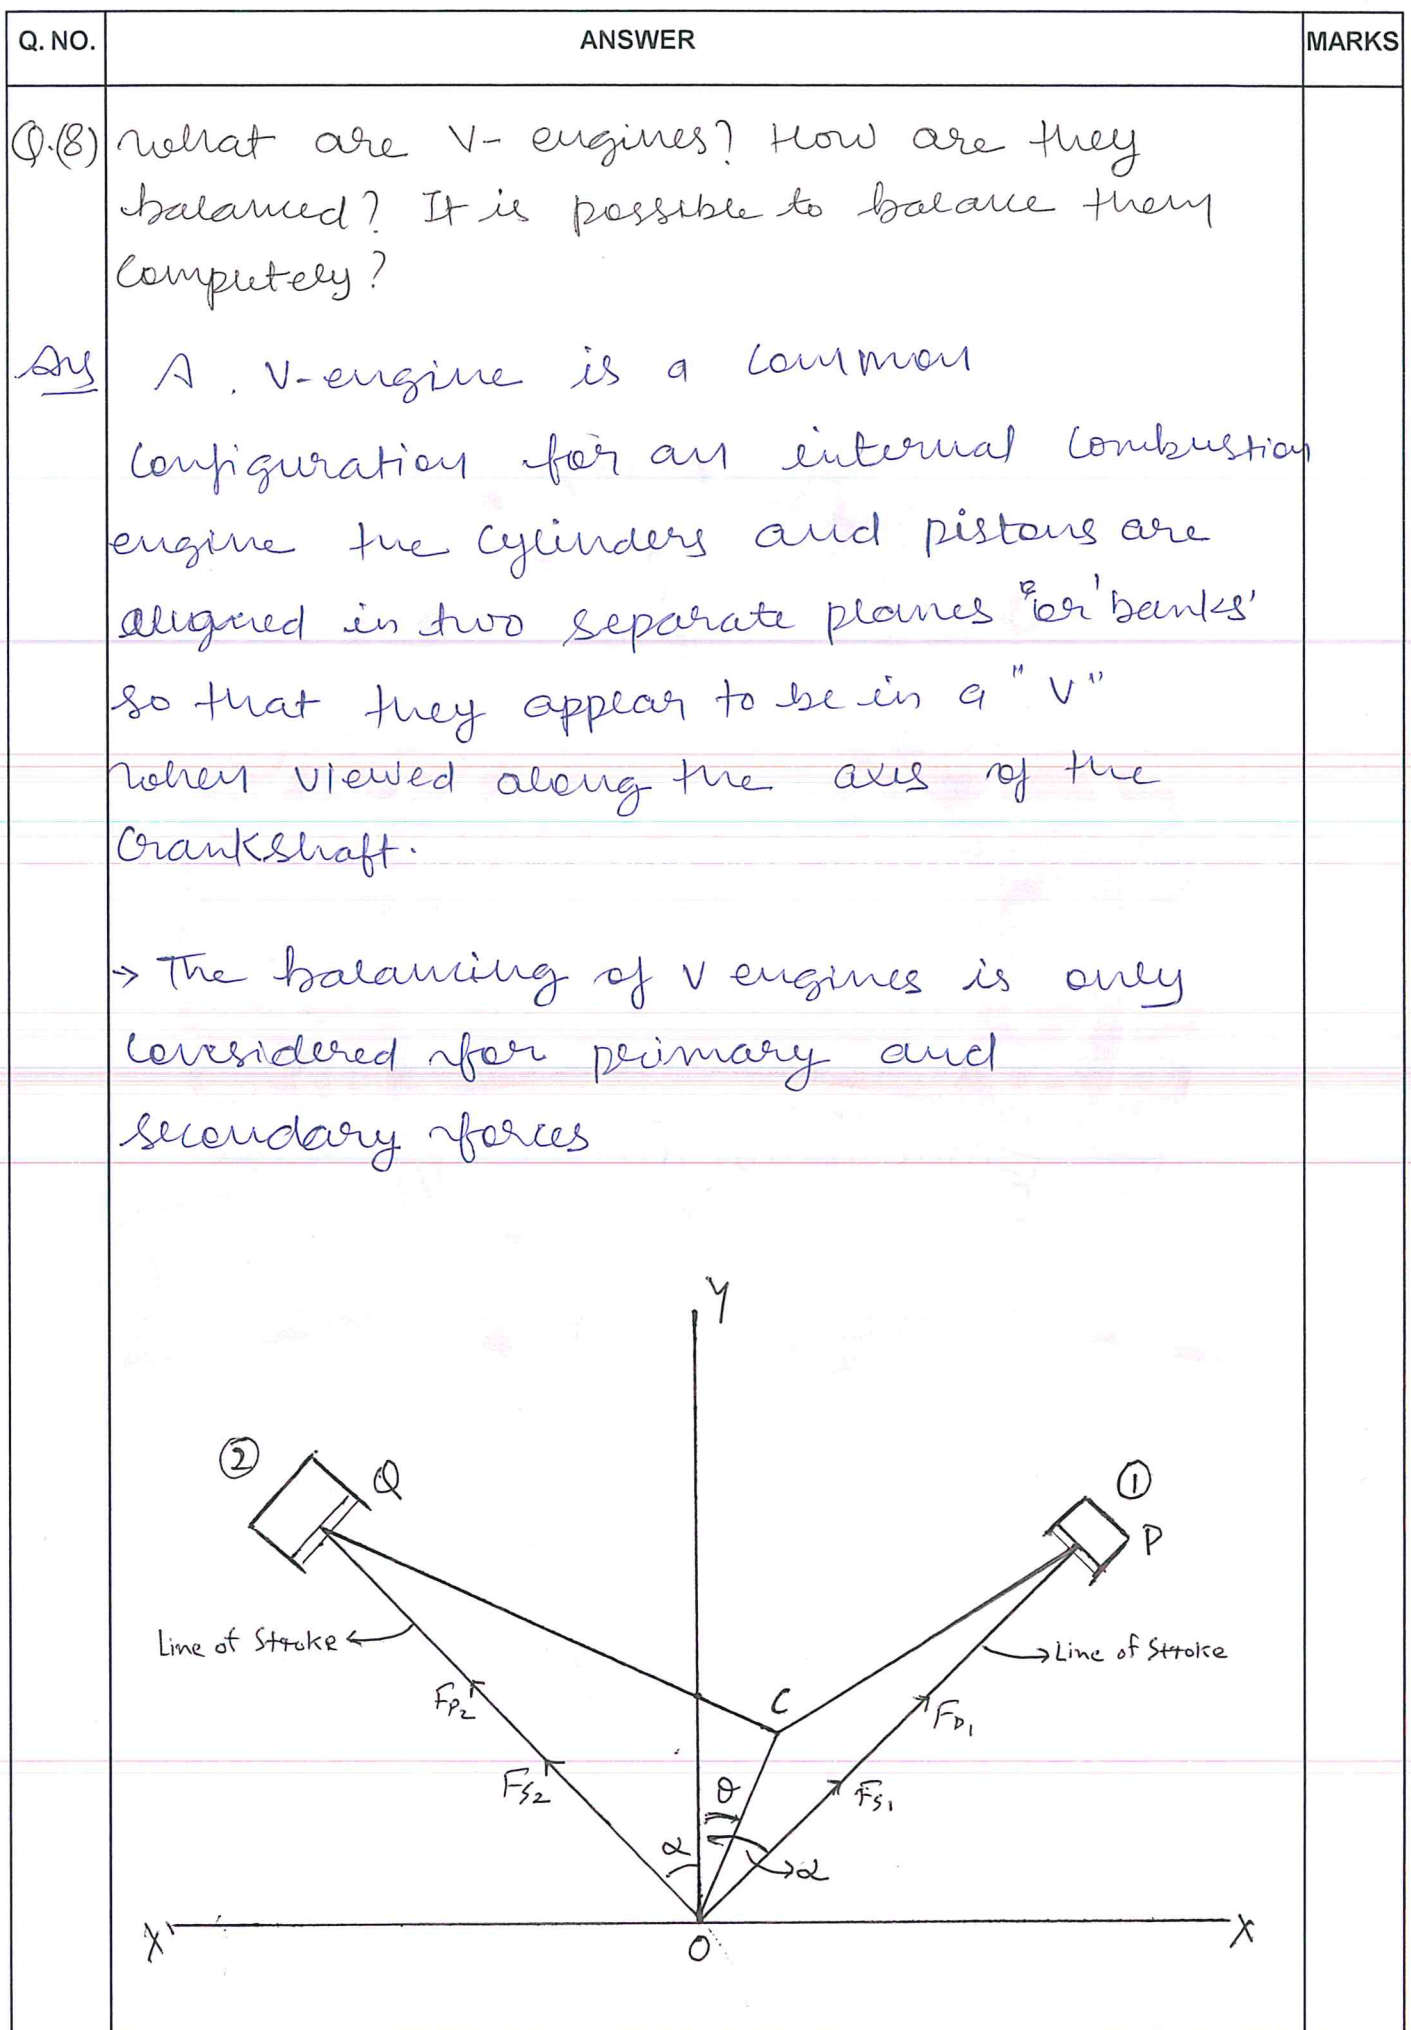 Q. NO. ANSWER MARKS
Q.(8) What are V- engines? How are they
balanced? It is possible to balance them
Completely?
Ans A. V-engine is a common
configuration for an internal combustion
engine the cylinders and pistons are
aligned in two separate planes or 'banks'
so that they appear to be in a "V"
when viewed along the axis of the
Crankshaft.
→ The balancing of V engines is only
considered for primary and
secondary forces
Y
② Q ① P
Line of Stroke Line of Stroke
FP2 C FP1
FS2 θ FS1
α α
X' O X